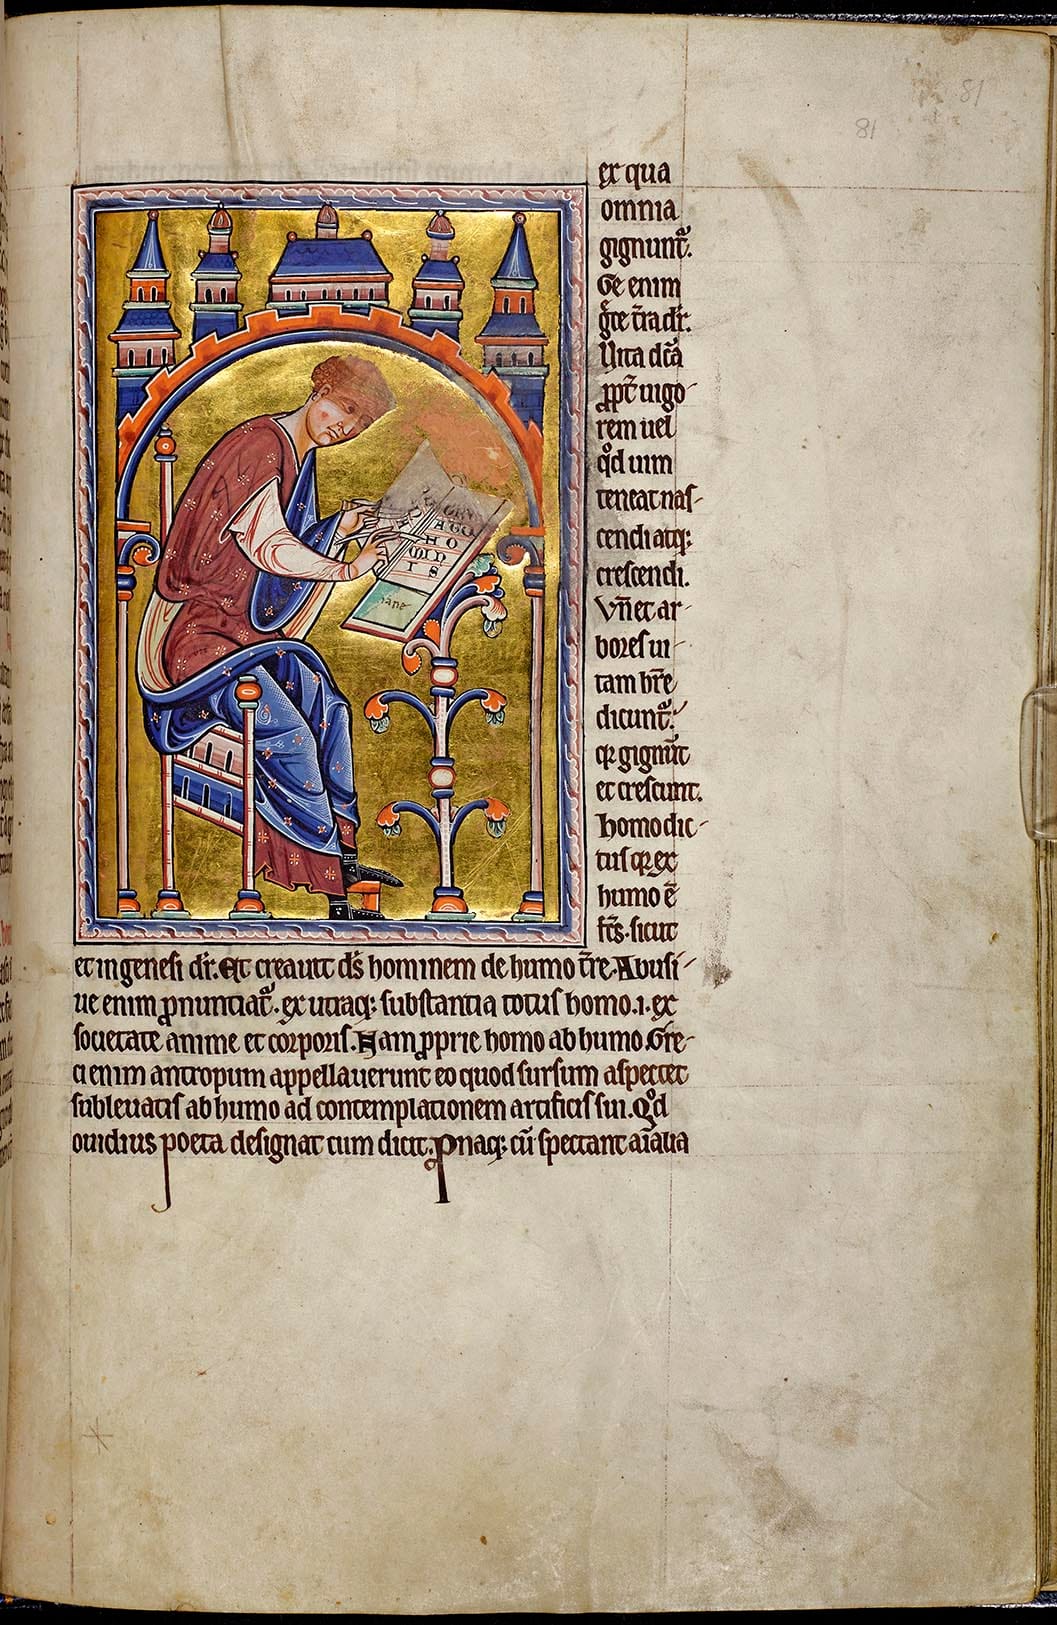 81
81
ex qua
omnia
gignunt᷑.
Ge enim
gͥce t̄ra dr̄.
Vita dc̄a
ꝓpt̄ uigo-
rem uel
qͦd uim
teneat nas-
cendi atq;
crescendi.
Vn̄ et ar-
bores ui-
tam hr̄e
dicunt᷑.
qꝛ gignūt
et crescunt.
Homo dic-
tus qꝛ ex
humo ē
fc̄s. sicut
et in genesi dr̄. Et creauit ds̄ hominem de humo t̄re. Abusi-
ue enim ꝓnuntiat᷑. ex utraq; substantia totus homo .i. ex
societate anime et corporis. Nam ꝓprie homo ab humo. Gre-
ci enim antropum appellauerunt eo quod sursum aspectet
subleuatis ab humo ad contemplationem artificis sui. Qͦd
ouidius poeta designat cum dicit. Pnaq; cū spectant aīalia
HO
MIN
IS